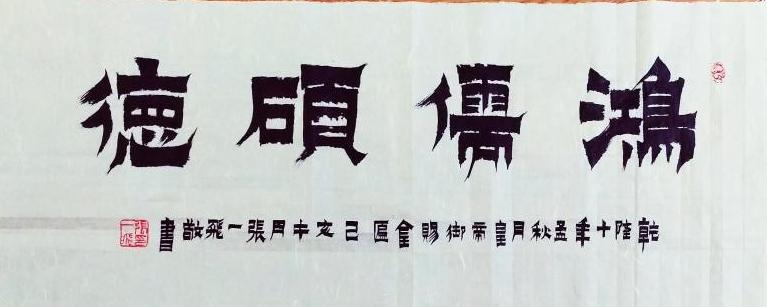 鴻儒碩德
乾隆十年孟秋月皇帝御賜金匾己亥午月張一飛敬書